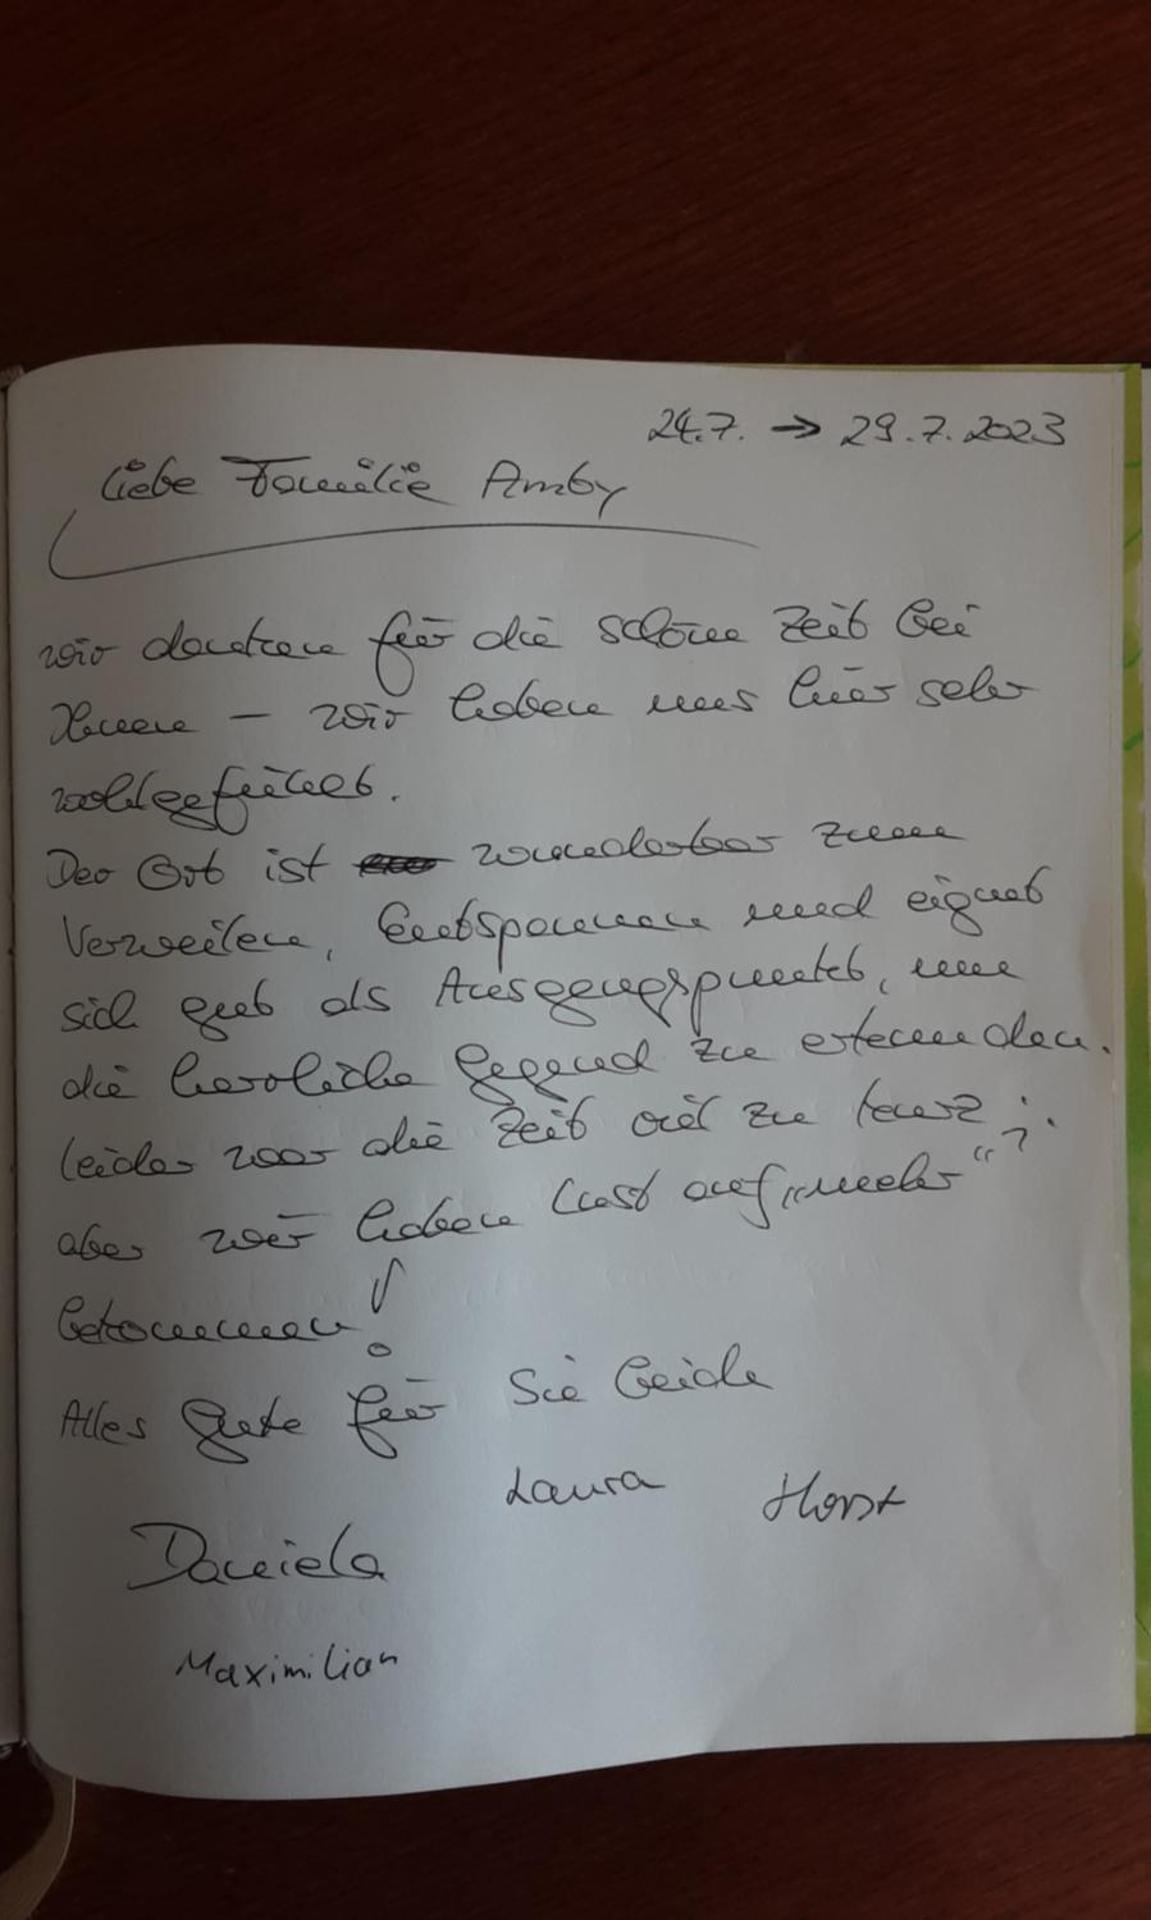 24.7. → 29.7.2023
Liebe Familie Amby
wir danken für die schöne Zeit bei
Ihnen – wir haben uns hier sehr
wohlgefühlt.
Der Ort ist wunderbar zum
Verweilen, Entspannen und eignet
sich gut als Ausgangspunkt, um
die herrliche Gegend zu erkunden.
Leider war die Zeit viel zu kurz;
aber wir haben Lust auf „mehr“
bekommen!
Alles Gute für Sie beide
Laura Horst
Daniela
Maximilian